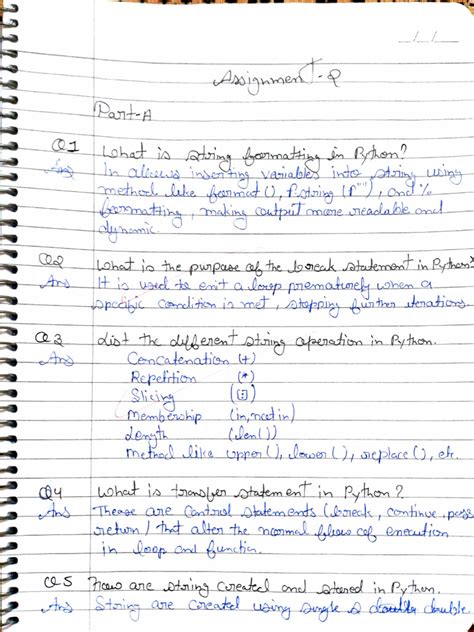 Assignment-2
Part-A
Q1 What is string formatting in Python?
Ans In allows inserting variables into string using
method like format(), f.string (f""), and %
formatting, making output more readable and
dynamic.
Q2 What is the purpose of the break statement in Python?
Ans It is used to exit a loop prematurely when a
specific condition is met, stopping further iterations.
Q3 List the different string operation in Python.
Ans Concatenation (+)
Repetition (*)
Slicing ([:])
Membership (in, not in)
Length (len())
Method like upper(), lower(), replace(), etc.
Q4 What is transfer statement in Python?
Ans These are control statements (break, continue, pass
return) that alter the normal flow of execution
in loop and function.
Q5 How are string created and stored in Python.
Ans String are created using single & double